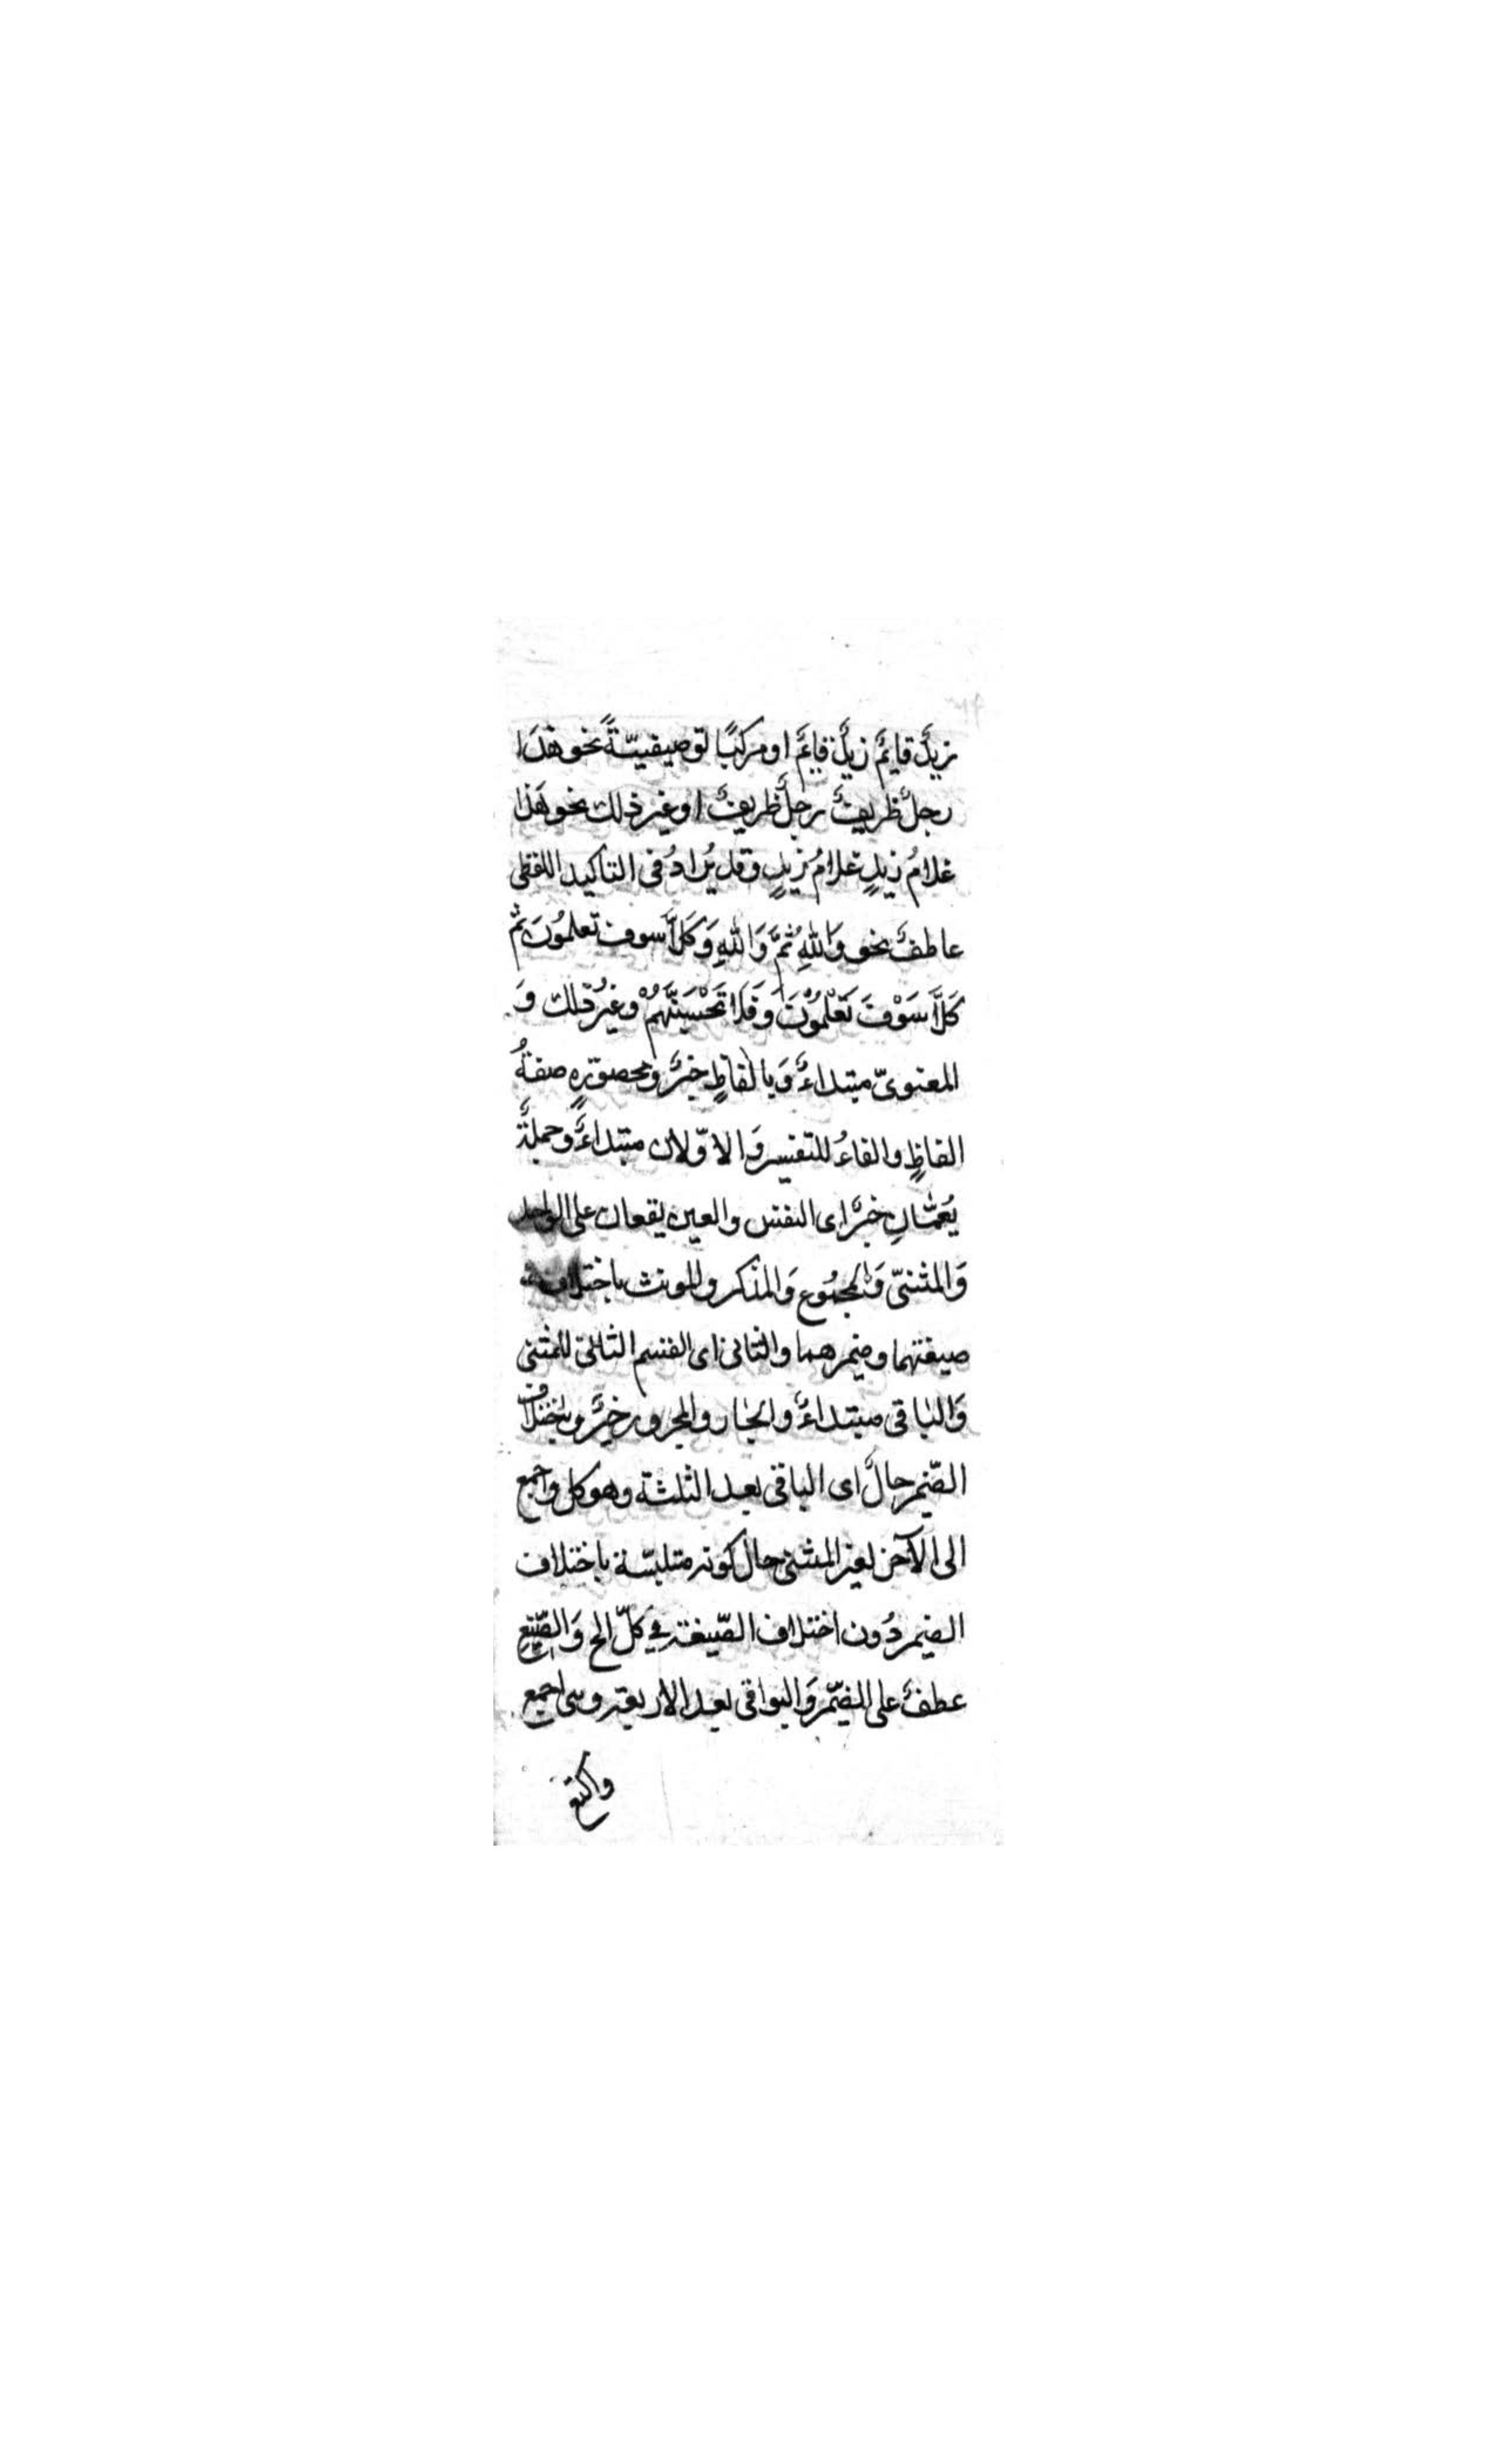 زيدٌ قايمٌ زيدٌ قايمٌ او مركبًا توصيفيّةً نحو هٰذا
رجلٌ ظريفٌ رجلٌ ظريفٌ او غير ذلك نحو هٰذا
غلامُ زيدٍ غلامُ زيدٍ وقد يُرادُ فى التاكيد اللفظى
عاطفٌ نحو وَاللهِ ثُمَّ وَاللهِ وَكَلاَّ سوف تعلمُونَ ثم
كَلاَّ سَوْفَ تَعْلَمُوْنَ وَفَلَا تَحْسَبَنَّهُمْ وغيرُ ذلك وَ
المعنوىّ مبتداءٌ وَبالفاظٍ خبرٌ ومحصورةٍ صفةُ
الفاظٍ والفاءُ للتفسير وَالاوّلان مبتداءٌ وجملةٌ
يُعمّانِ خبرٌ اى النفس والعين يقعان على الواحد
وَالمثنىّ وَالمجمُوع وَالمذكر والمونث باختلاف
صيغتهما وضميرهما والثانى اى القسم الثانى للمثنى
وَالباقى مبتداءٌ والجار والمجرور خبرٌ وباختلاف
الضّمير حالٌ اى الباقى بعد الثلثة وهو كل واجمع
الى الآخر لغير المثنى حال كونه متلبّسة باختلاف
الضمير دُون اختلاف الصّيغة فى كلّ الخ وَالصّيغ
عطفٌ على الضّمير وَالبواقى بعد الاربعة وهى اجمع
واكتع